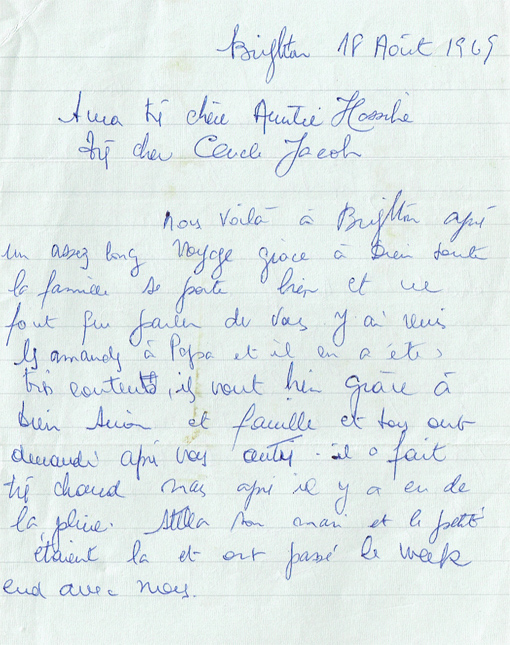 Brighton 18 Août 1969
A ma très chère Auntie
très cher Oncle Jacob
Nous voilà à Brighton après
un assez long voyage grâce à Dieu toute
la famille se porte bien et ne
font que parler de vous. J'ai remis
les amandes à Papa et il en a été
très content, ils vont bien grâce à
Dieu et famille et tous ont
demandé après vous autres. il a fait
très chaud mais après il y a eu de
la pluie. Stella son mari et le petit
étaient la et ont passé le week
end avec nous.